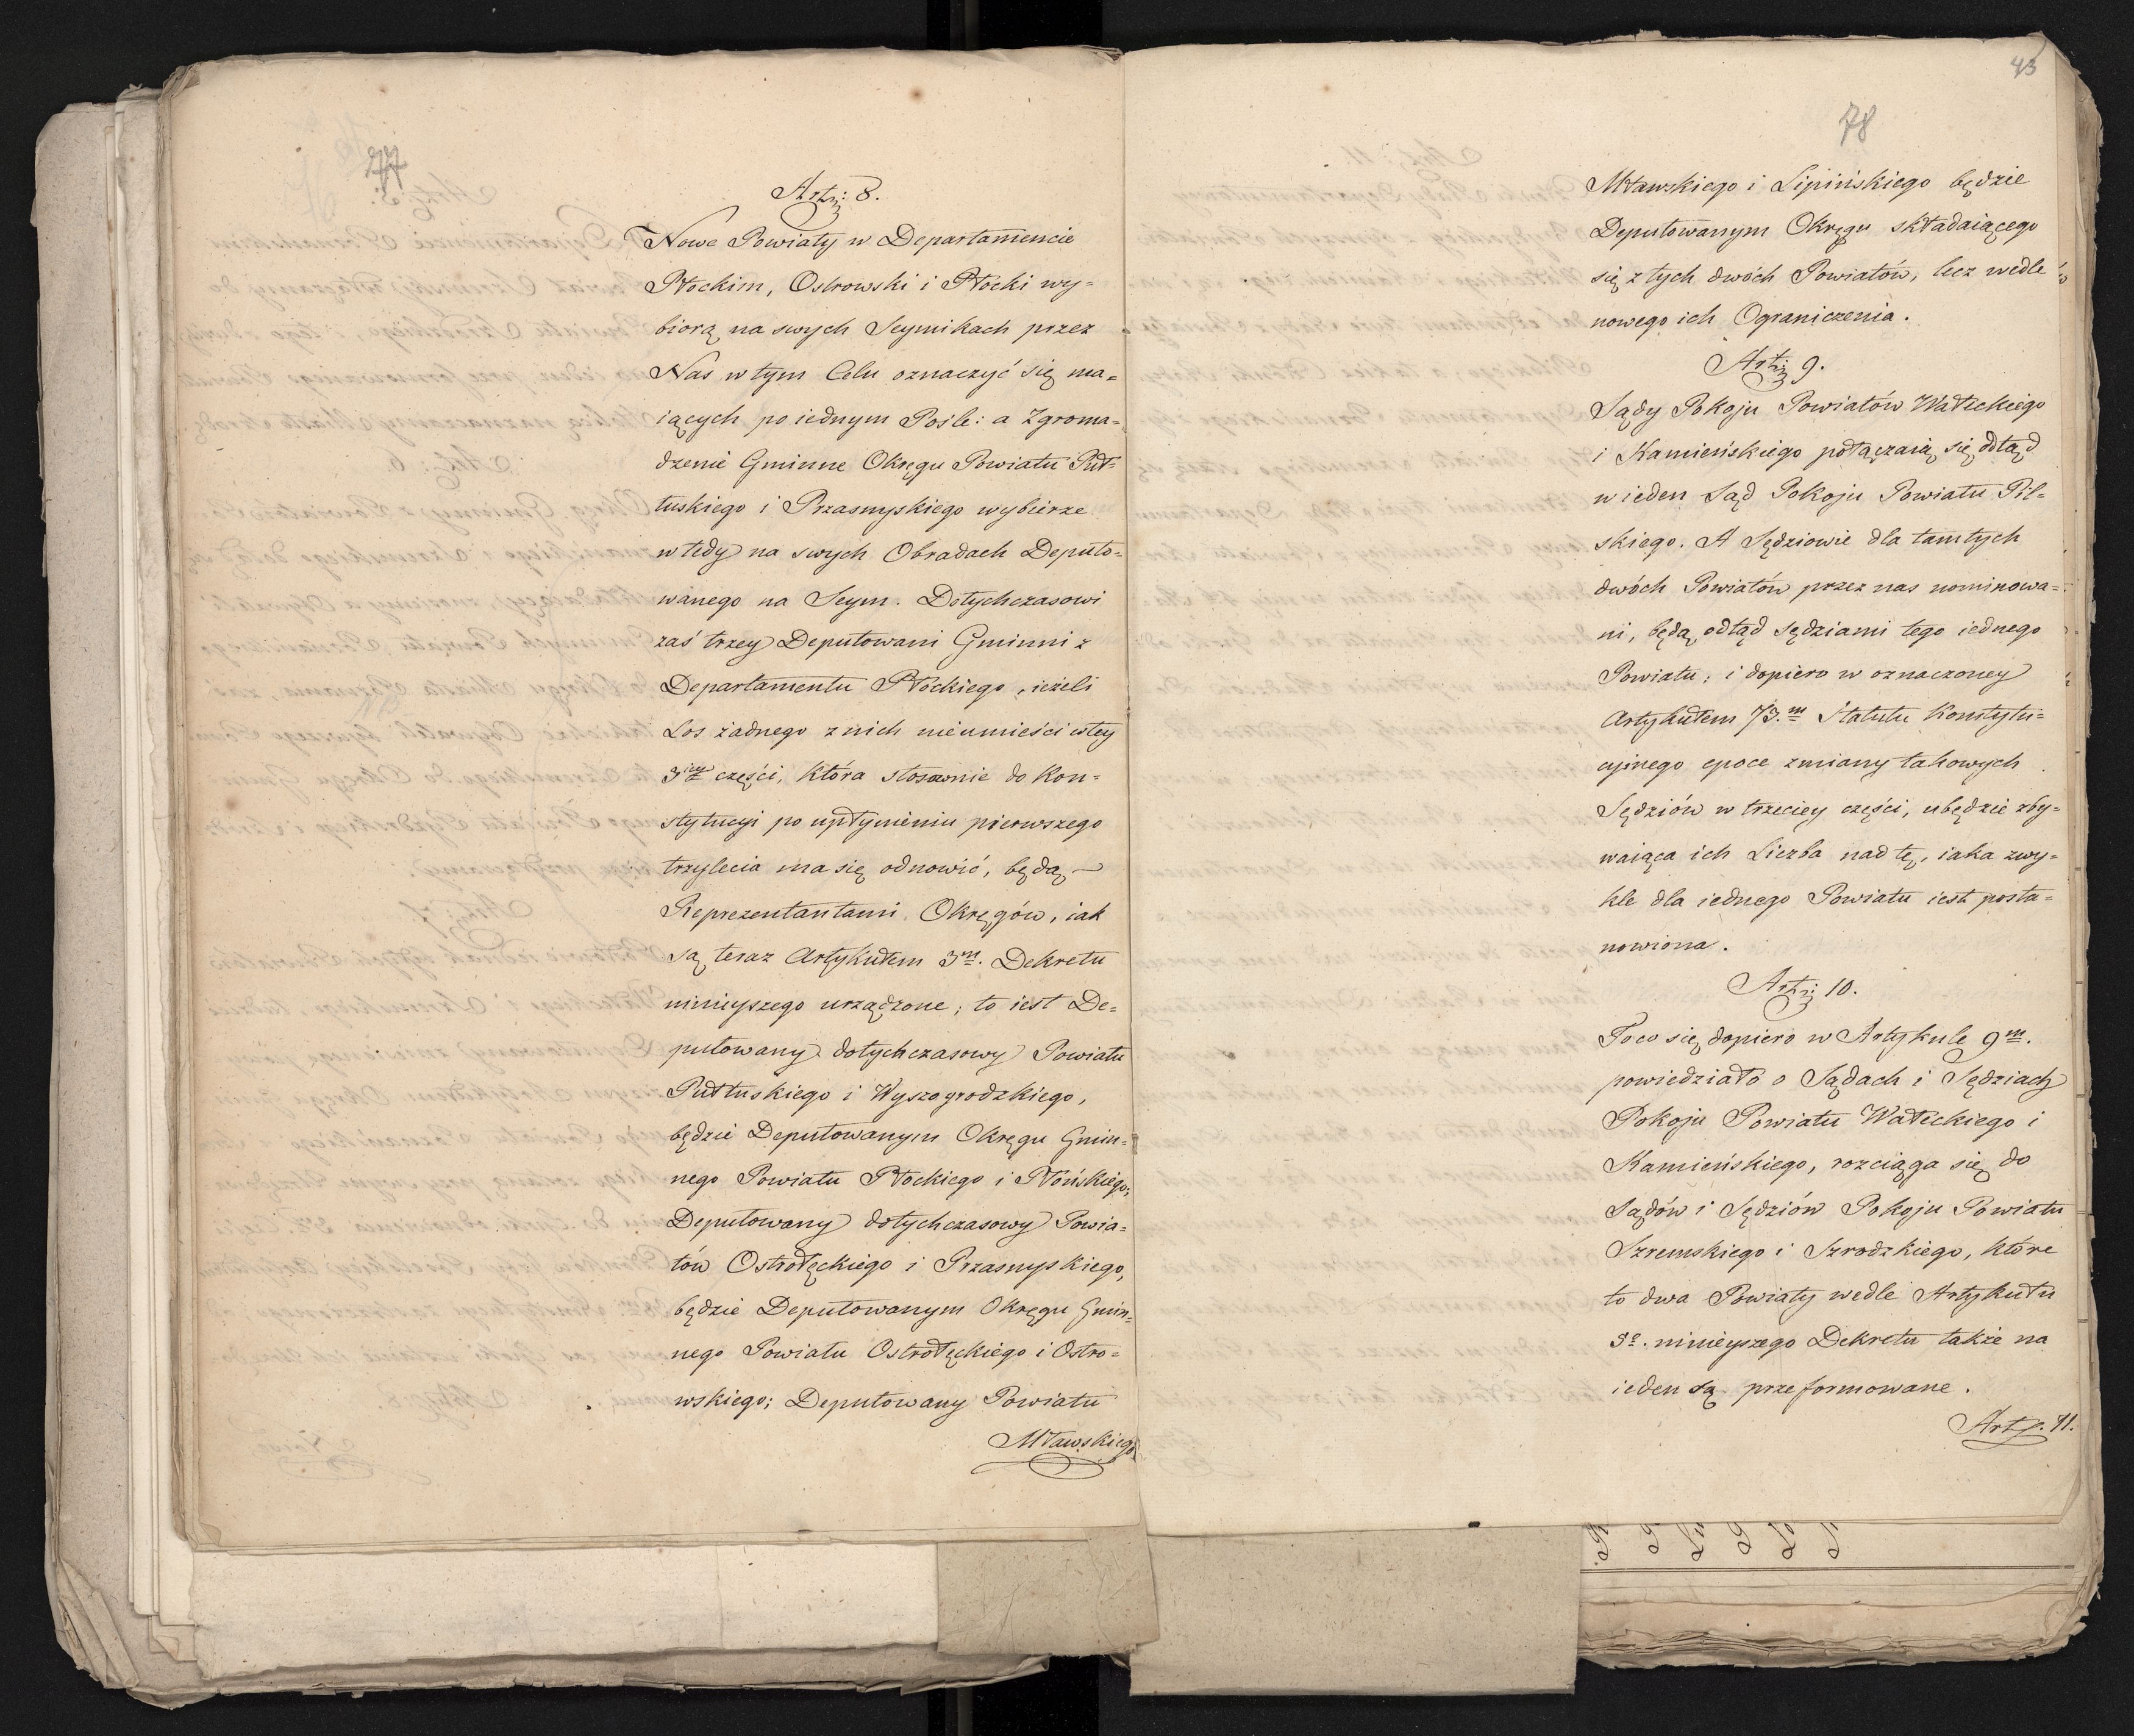 77
Arty: 8.
Nowe Powiaty w Departamencie
Płockim, Ostrowski i Płocki wy=
biorą na swych Seymikach przez
Nas w tym Celu oznaczyć się ma=
iących po iednym Pośle: a Zgroma=
dzenie Gminne Okręgu Powiatu Puł=
tuskiego i Przasnyskiego wybierze
wtedy na swych Obradach Deputo=
wanego na Seym. Dotychczasowi
zaś trzey Deputowani Gminni z
Departamentu Płockiego, ieżeli
Los żadnego z nich nieumieści w tey
3iey części, która stosownie do Kon=
stytucyi po upłynieniu pierwszego
trzylecia ma się odnowić, będą
Reprezentantami Okręgów, iak
są teraz Artykułem 3m. Dekretu
ninieyszego urządzone; to iest De=
putowany dotychczasowy Powiatu
Pułtuskiego i Wyszogrodzkiego,
będzie Deputowanym Okręgu Gmin=
nego Powiatu Płockiego i Płońskiego;
Deputowany dotychczasowy Powia=
tów Ostrołęckiego i Przasnyskiego,
będzie Deputowanym Okręgu Gmin=
nego Powiatu Ostrołęckiego i Ostro=
wskiego; Deputowany Powiatu
Mławskiego
43
78
Mławskiego i Lipińskiego będzie
Deputowanym Okręgu składaiącego
się z tych dwóch Powiatów, lecz wedle
nowego ich Ograniczenia.
Arty: 9.
Sądy Pokoju Powiatów Wałeckiego
i Kamieńskiego połączaią się odtąd
w ieden Sąd Pokoju Powiatu Pil=
skiego. A Sędziowie dla tamtych
dwóch Powiatów przez nas nominowa=
ni, będą odtąd sędziami tego iednego
Powiatu; i dopiero w oznaczoney
Artykułem 73.m Statutu Konstytu=
cyjnego epoce zmiany takowych
Sędziów w trzeciey części, ubędzie zby=
waiąca ich Liczba nad tę, iaka zwy=
kle dla iednego Powiatu iest posta=
nowiona.
Arty: 10.
To co się dopiero w Artykule 9m.
powiedziało o Sądach i Sędziach
Pokoju Powiatu Wałeckiego i
Kamieńskiego, rozciąga się do
Sądów i Sędziów Pokoju Powiatu
Szremskiego i Szrodzkiego, które
to dwa Powiaty wedle Artykułu
ninieyszego Dekretu także na
ieden są przeformowane.
Arty. 11.